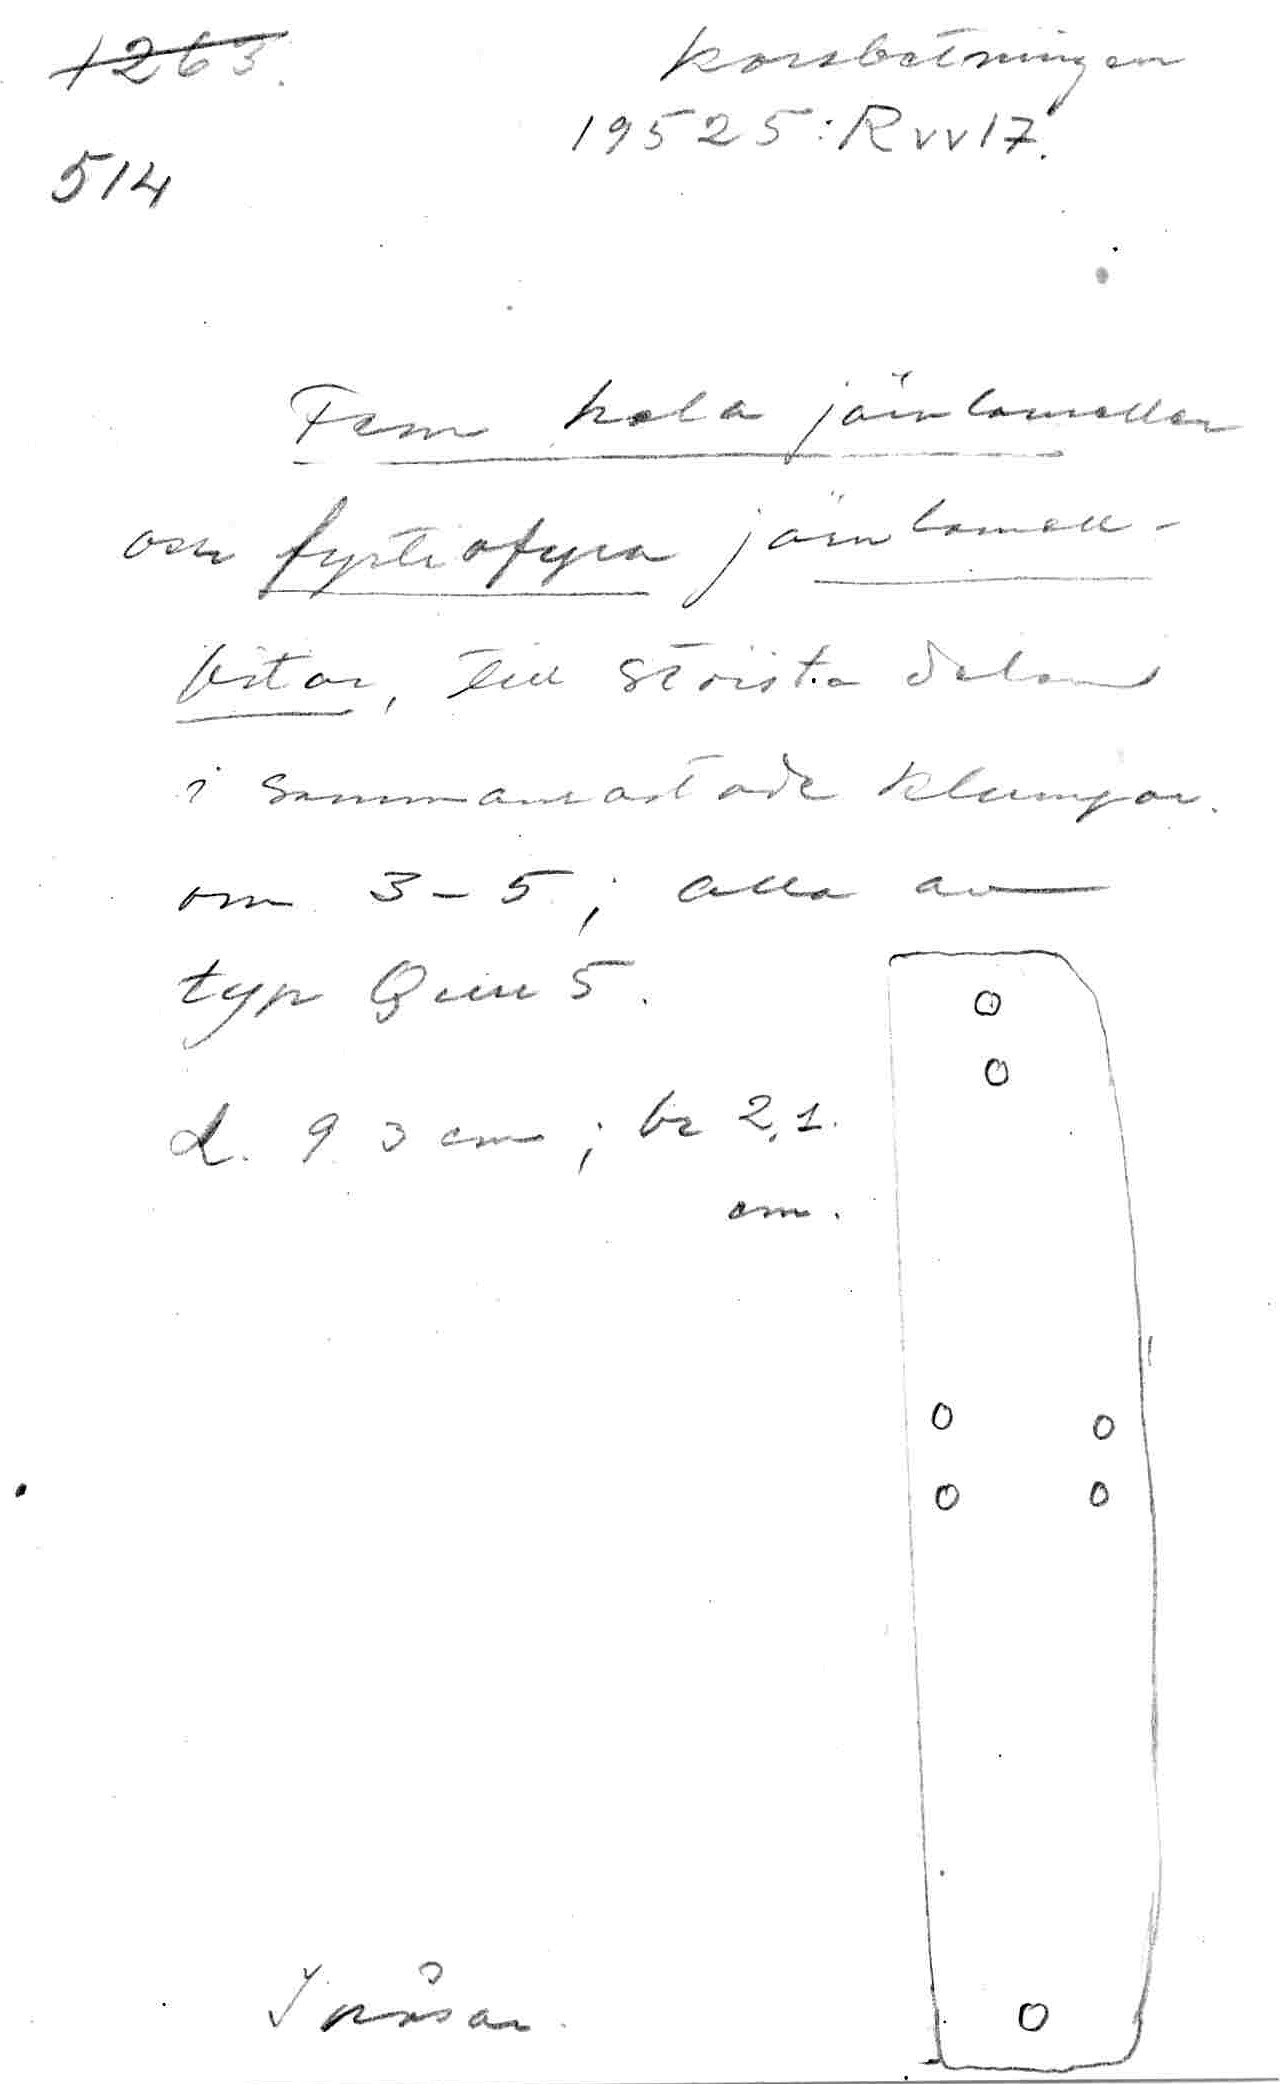 1263.
Korsbetningen
19525: Rvv17.
514
Fem hela järnlameller
och fyrtiofyra järnlamell-
bitar, till största delen
i sammanrostade klumpar
om 3-5; alla av
typ 5.
L. 9.3 cm; br 2,1.
cm.
I påsar.